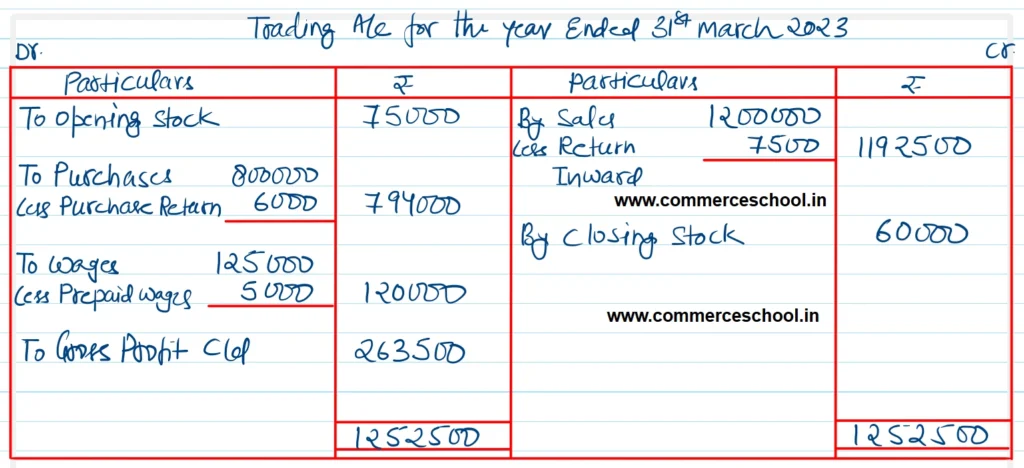 Trading A/c for the year Ended 31st March 2023
Dr. Cr.
Particulars ₹ Particulars ₹
To Opening Stock 75000 By Sales 1200000
Less Return 7500 1192500
To Purchases 800000 Inward
Less Purchase Return 6000 794000 www.commerceschool.in
By Closing Stock 60000
To Wages 125000
Less Prepaid Wages 5000 120000
www.commerceschool.in
To Gross Profit C/d 263500
1252500 1252500